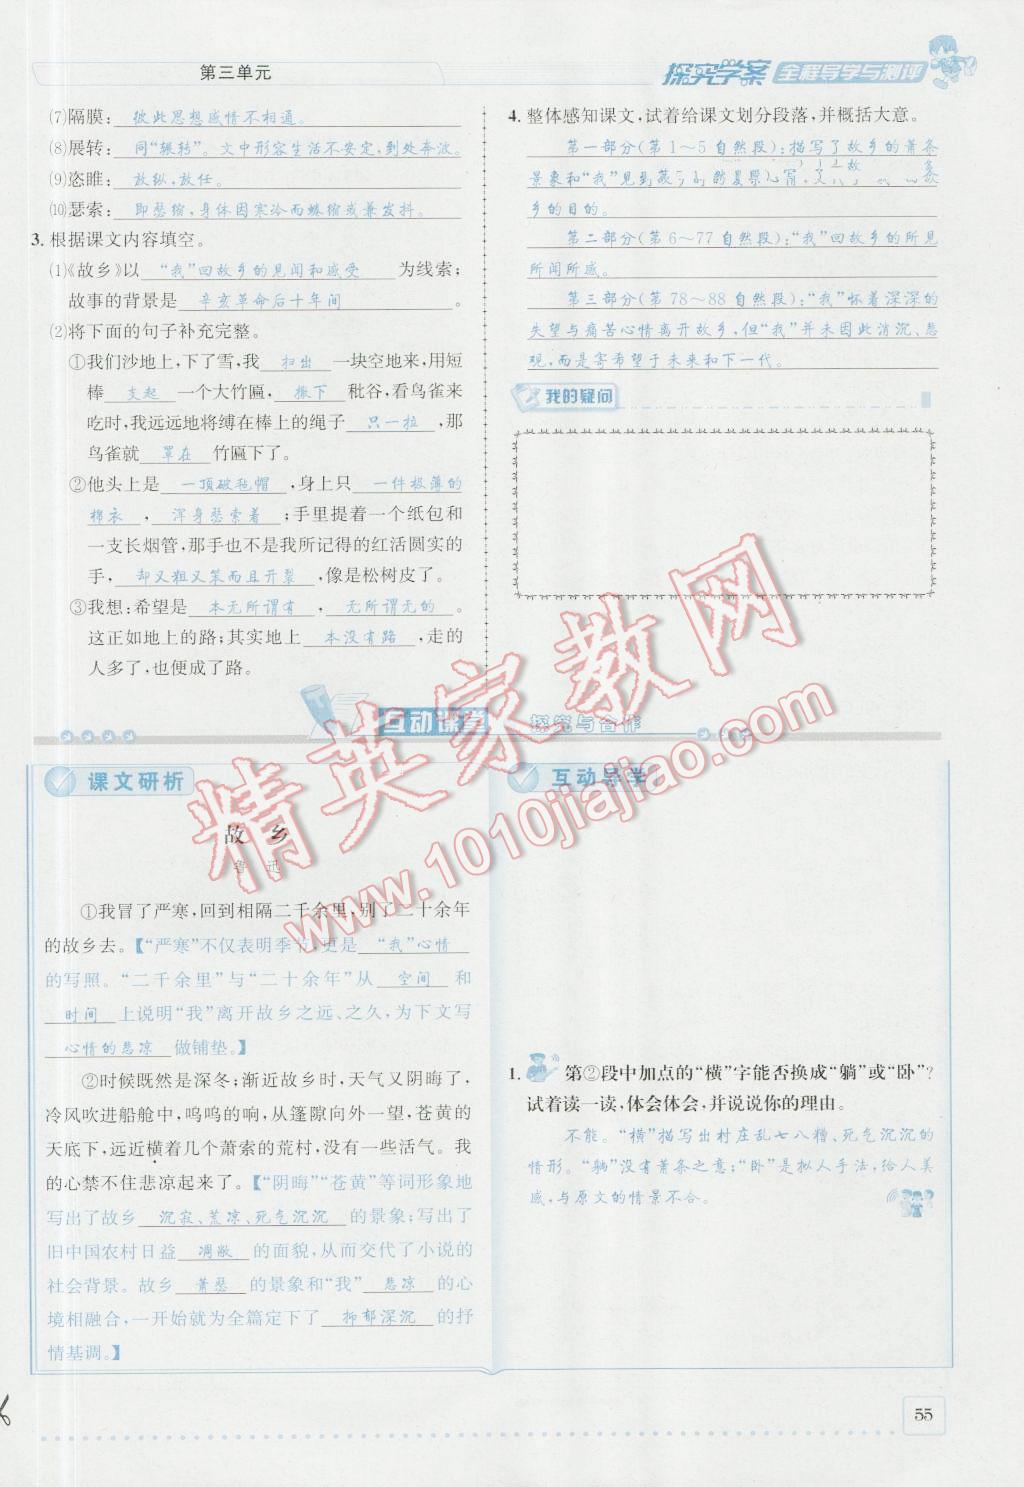 第三单元
探究学案 全程导学与测评
⑺隔膜：彼此思想感情不相通。
⑻展转：同“辗转”。文中形容生活不安定，到处奔波。
⑼恣睢：放纵，放任。
⑽瑟索：即瑟缩，身体因寒冷而蜷缩或兼发抖。
3. 根据课文内容填空。
⑴《故乡》以 “我”回故乡的见闻和感受 为线索；
故事的背景是 辛亥革命后十年间 。
⑵将下面的句子补充完整。
①我们沙地上，下了雪，我 扫出 一块空地来，用短
棒 支起 一个大竹匾，撒下 秕谷，看鸟雀来
吃时，我远远地将缚在棒上的绳子 只一拉 ，那
鸟雀就 罩在 竹匾下了。
②他头上是 一顶破毡帽 ，身上只 一件极薄的
棉衣 ，浑身瑟索着 ；手里提着一个纸包和
一支长烟管，那手也不是我所记得的红活圆实的
手，却又粗又笨而且开裂 ，像是松树皮了。
③我想：希望是 本无所谓有 ，无所谓无的 。
这正如地上的路；其实地上 本没有路 ，走的
人多了，也便成了路。
4. 整体感知课文，试着给课文划分段落，并概括大意。
第一部分（第1～5自然段）：描写了故乡的萧条
景象和“我”见到故乡
乡的目的。
第二部分（第6～77自然段）：“我”回故乡的所见
所闻所感。
第三部分（第78～88自然段）：“我”怀着深深的
失望与痛苦心情离开故乡，但“我”并未因此消沉、悲
观，而是寄希望于未来和下一代。
我的疑问
互动课堂 探究与合作
课文研析
故 乡
鲁 迅
①我冒了严寒，回到相隔二千余里，别了二十余年
的故乡去。【“严寒”不仅表明季节，更是 “我”心情
的写照。“二千余里”与“二十余年”从 空间 和
时间 上说明“我”离开故乡之远、之久，为下文写
心情的悲凉 做铺垫。】
②时候既然是深冬；渐近故乡时，天气又阴晦了，
冷风吹进船舱中，呜呜的响，从篷隙向外一望，苍黄的
天底下，远近横着几个萧索的荒村，没有一些活气。我
的心禁不住悲凉起来了。【“阴晦”“苍黄”等词形象地
写出了故乡 沉寂、荒凉、死气沉沉 的景象；写出了
旧中国农村日益 凋敝 的面貌，从而交代了小说的
社会背景。故乡 萧瑟 的景象和“我” 悲凉 的心
境相融合，一开始就为全篇定下了 抑郁深沉 的抒
情基调。】
互动导学
1. 第②段中加点的“横”字能否换成“躺”或“卧”？
试着读一读，体会体会，并说说你的理由。
不能。“横”描写出村庄乱七八糟、死气沉沉的
情形。“躺”没有萧条之意；“卧”是拟人手法，给人美
感，与原文的情景不合。
精英家教网
www.1010jiajiao.com
55